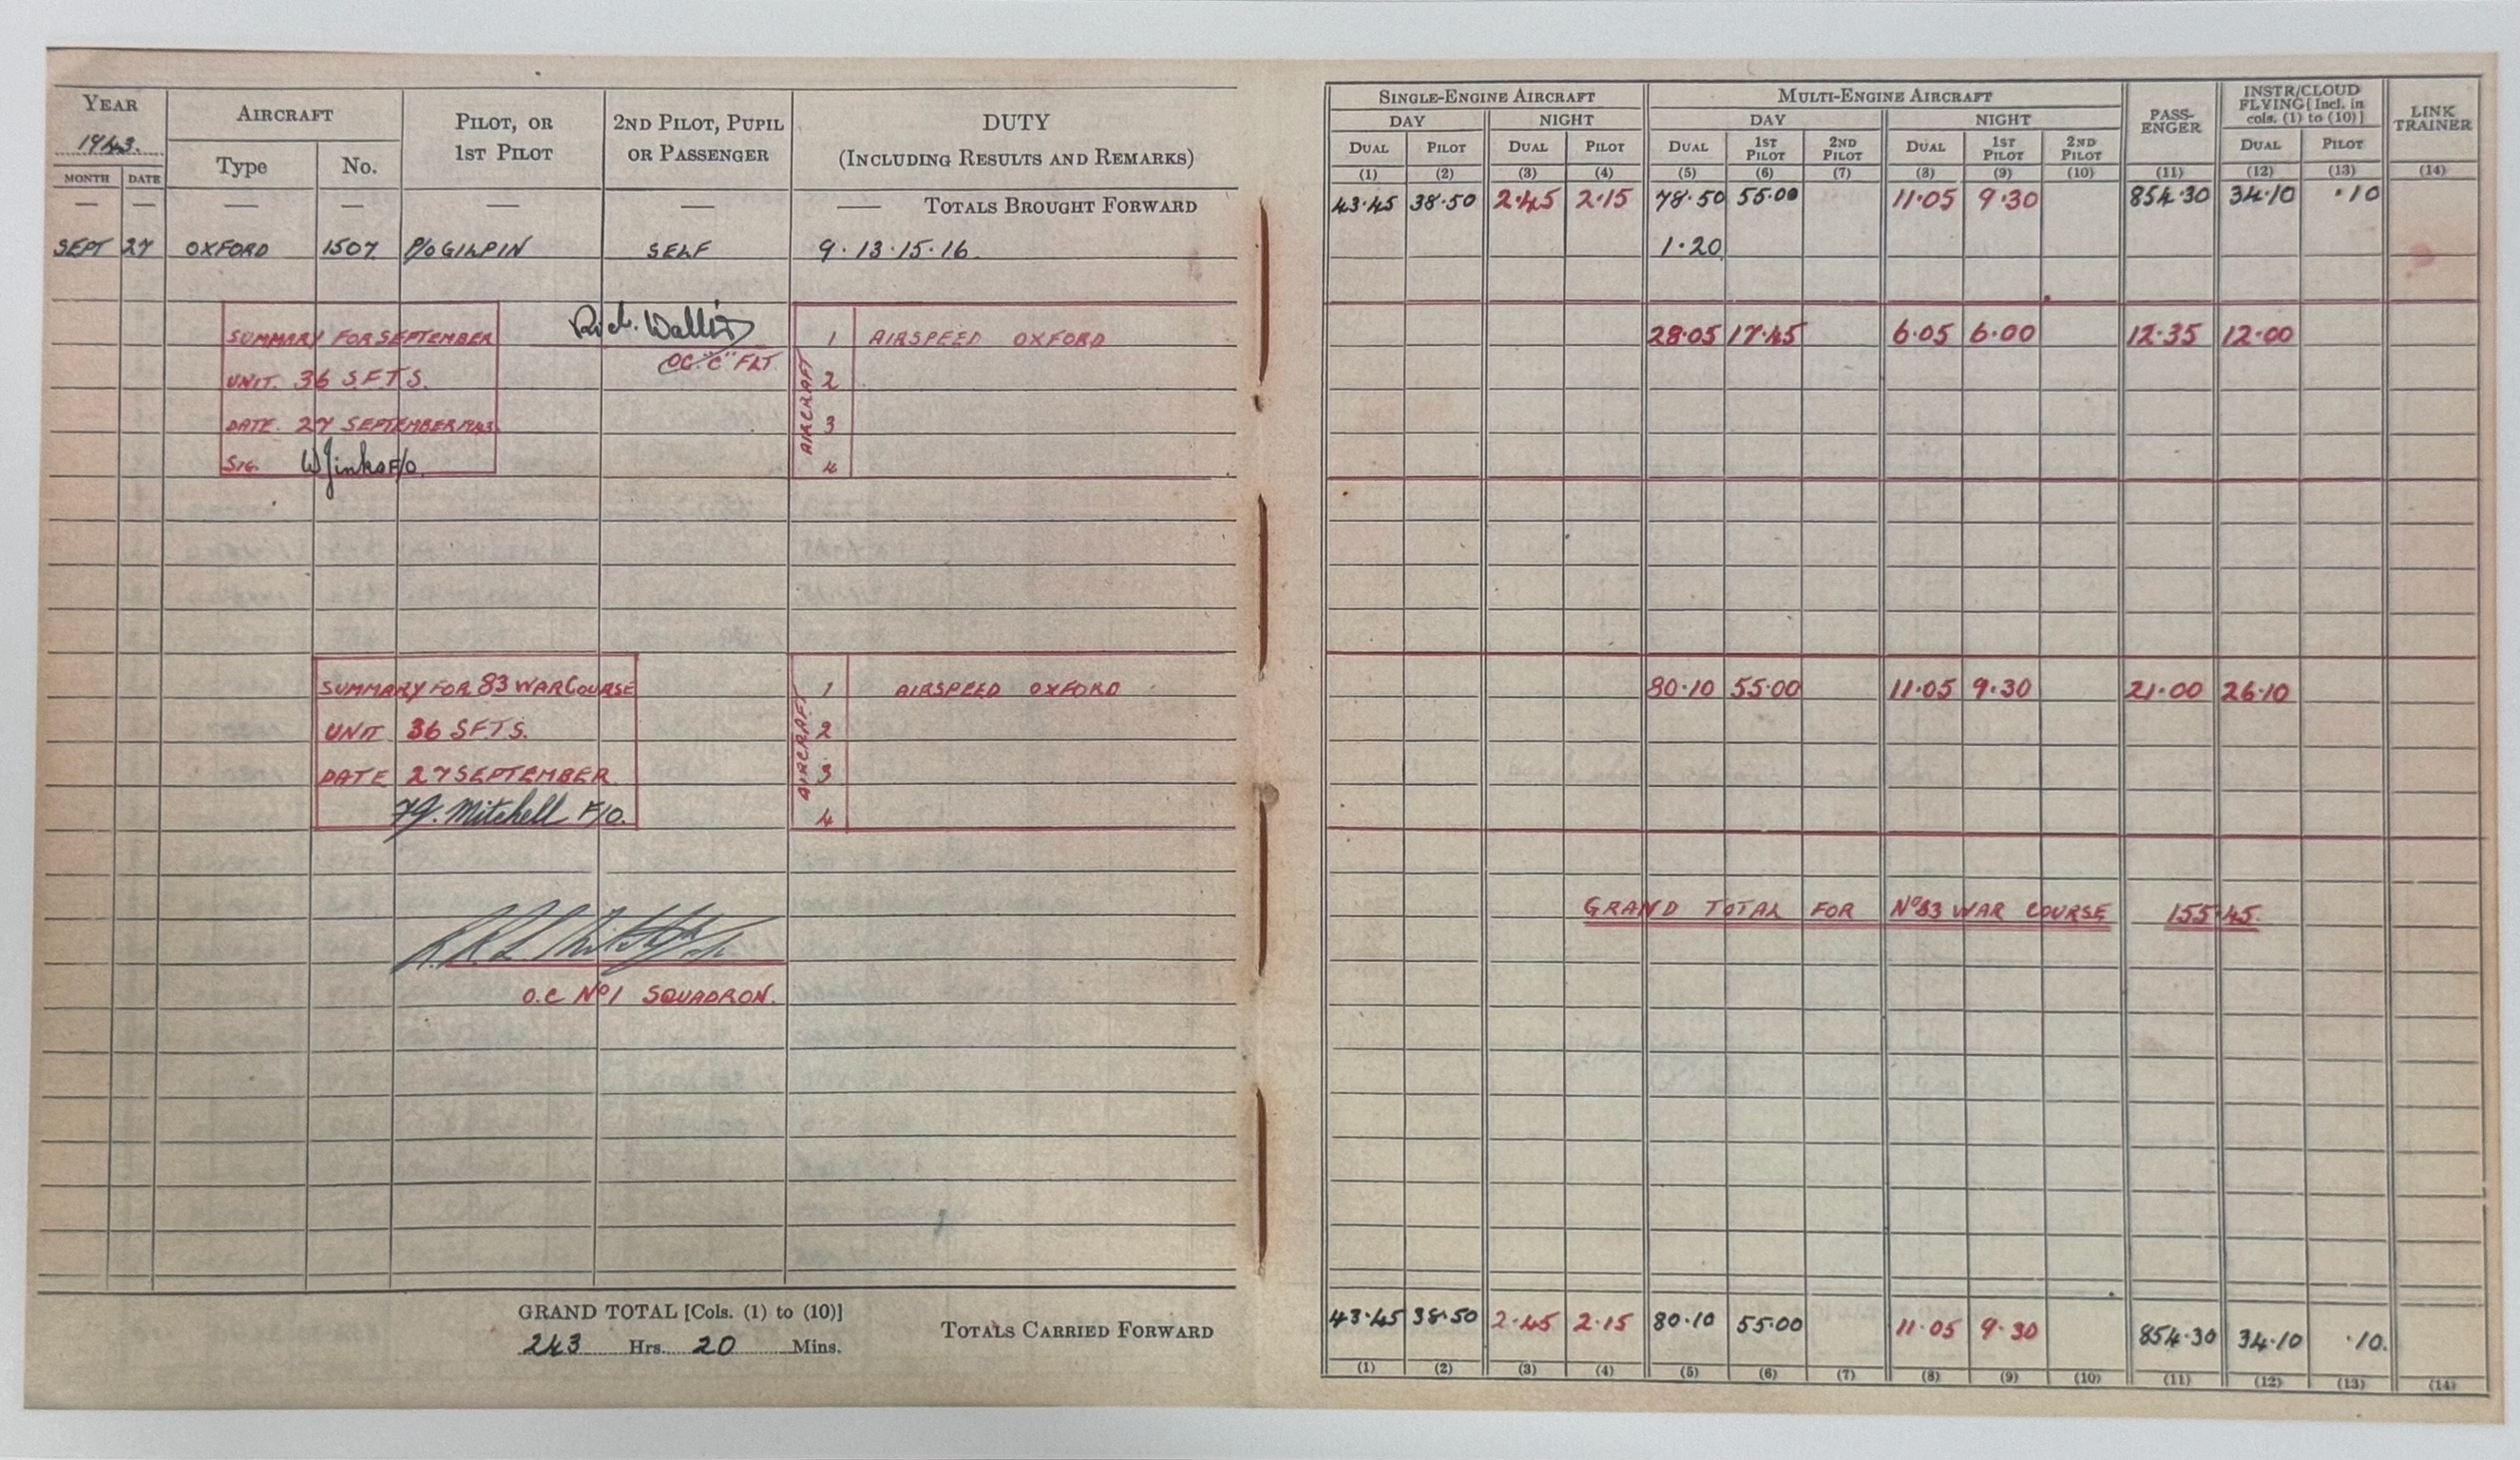 YEAR 1943. AIRCRAFT PILOT, OR 1ST PILOT 2ND PILOT, PUPIL OR PASSENGER DUTY (INCLUDING RESULTS AND REMARKS)
MONTH DATE Type No.
— — — — — — — TOTALS BROUGHT FORWARD
SEPT 27 OXFORD 1507 P/O GILPIN SELF 9·13·15·16.
SUMMARY FOR SEPTEMBER
UNIT. 36 S.F.T.S.
DATE. 27 SEPTEMBER 1943
SIG. W Jinks F/O.
Rich. Wallis
OC. "C" FLT.
AIRCRAFT
1 AIRSPEED OXFORD
2
3
4
SUMMARY FOR 83 WAR COURSE
UNIT 36 SFTS.
DATE 27 SEPTEMBER
Mitchell F/O.
AIRCRAFT
1 AIRSPEED OXFORD
2
3
4
O.C Nº1 SQUADRON.
GRAND TOTAL [Cols. (1) to (10)]
243 Hrs. 20 Mins.
TOTALS CARRIED FORWARD
SINGLE-ENGINE AIRCRAFT MULTI-ENGINE AIRCRAFT PASS-ENGER INSTR/CLOUD FLYING [Incl. in cols. (1) to (10)] LINK TRAINER
DAY NIGHT DAY NIGHT
DUAL PILOT DUAL PILOT DUAL 1ST PILOT 2ND PILOT DUAL 1ST PILOT 2ND PILOT DUAL PILOT
(1) (2) (3) (4) (5) (6) (7) (8) (9) (10) (11) (12) (13) (14)
43·45 38·50 2·45 2·15 78·50 55·00 11·05 9·30 854·30 34·10 ·10
1·20
28·05 17·45 6·05 6·00 12·35 12·00
80·10 55·00 11·05 9·30 21·00 26·10
GRAND TOTAL FOR Nº83 WAR COURSE 155·45.
43·45 38·50 2·45 2·15 80·10 55·00 11·05 9·30 854·30 34·10 ·10.
(1) (2) (3) (4) (5) (6) (7) (8) (9) (10) (11) (12) (13) (14)